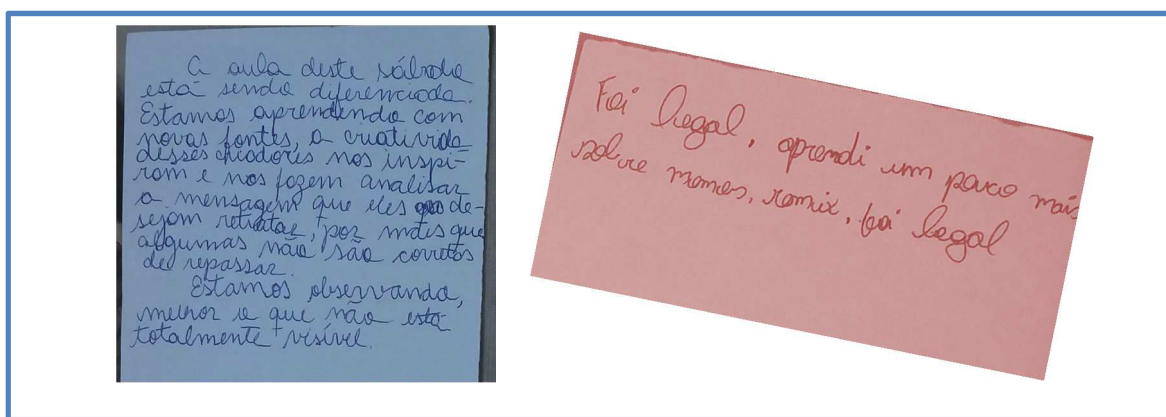 A aula deste sábado
está sendo diferenciada.
Estamos aprendendo com
novas fontes, a criativida
desses criadores nos inspi-
ram e nos fazem analisar
a mensagem que eles de-
sejam retratar, por mais que
algumas não são corretas
de repassar.
Estamos observando,
melhor o que não está
totalmente visível.
Foi legal, aprendi um pouco mais
sobre memes, remix, foi legal